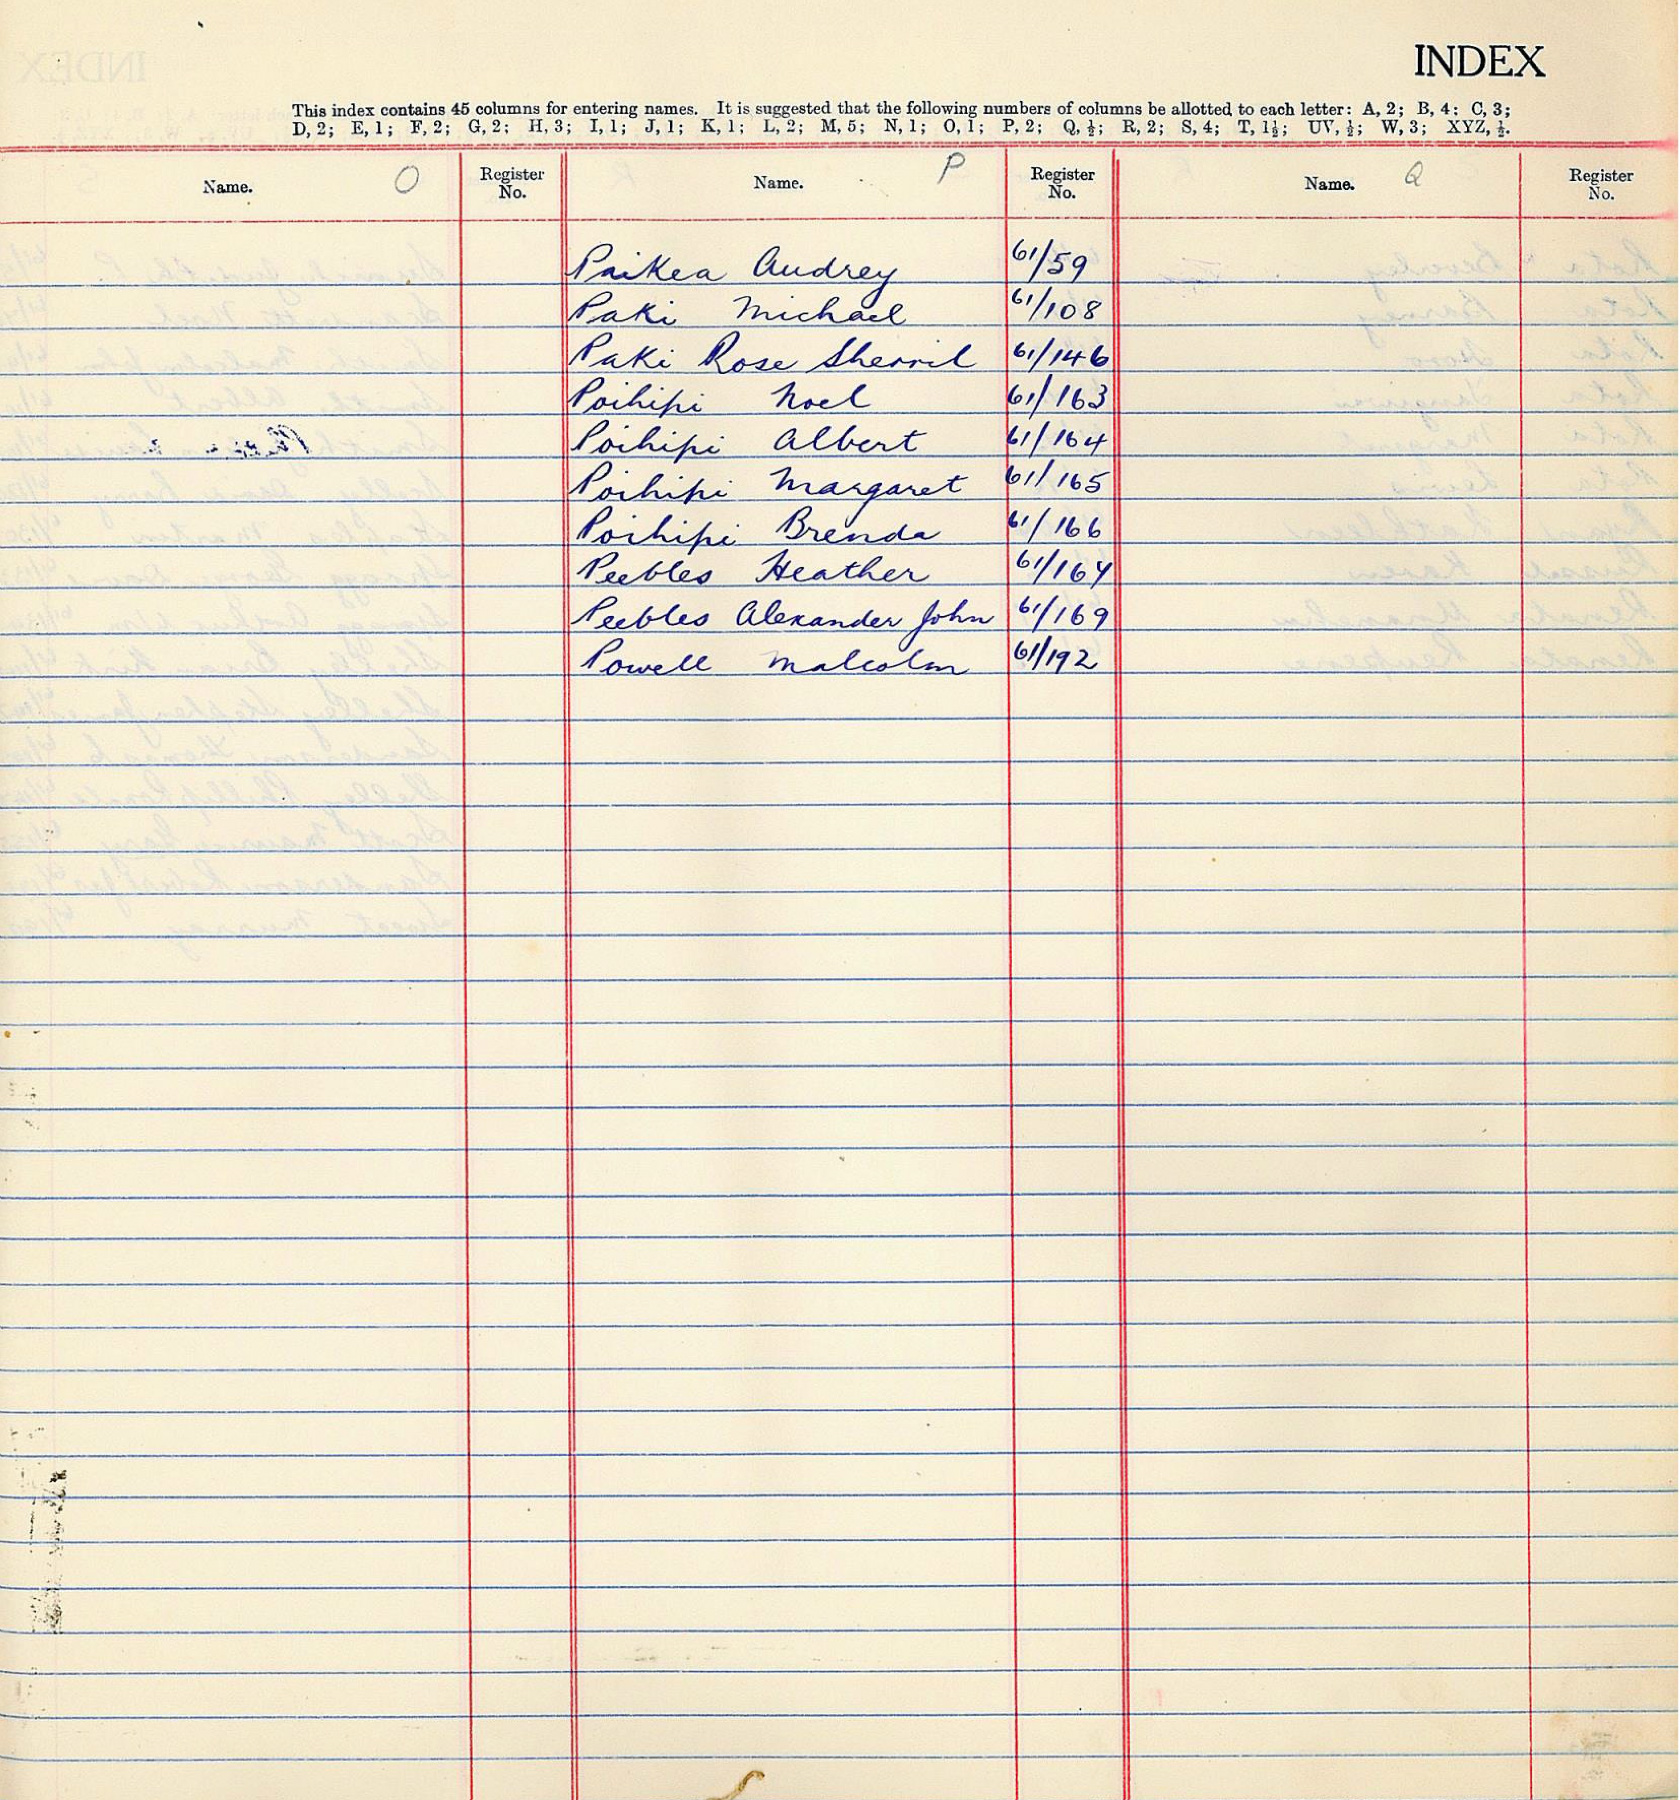 INDEX
This index contains 45 columns for entering names. It is suggested that the following numbers of columns be allotted to each letter: A, 2; B, 4; C, 3;
D, 2; E, 1; F, 2; G, 2; H, 3; I, 1; J, 1; K, 1; L, 2; M, 5; N, 1; O, 1; P, 2; Q, ½; R, 2; S, 4; T, 1½; UV, ½; W, 3; XYZ, ½.
Name. O Register No. Name. P Register No. Name. Q Register No.
Paikea Audrey 61/59
Paki Michael 61/108
Paki Rose Sherril 61/146
Poihipi Noel 61/163
Poihipi Albert 61/164
Poihipi Margaret 61/165
Poihipi Brenda 61/166
Peebles Heather
Peebles Alexander John 61/169
Powell Malcolm 61/192